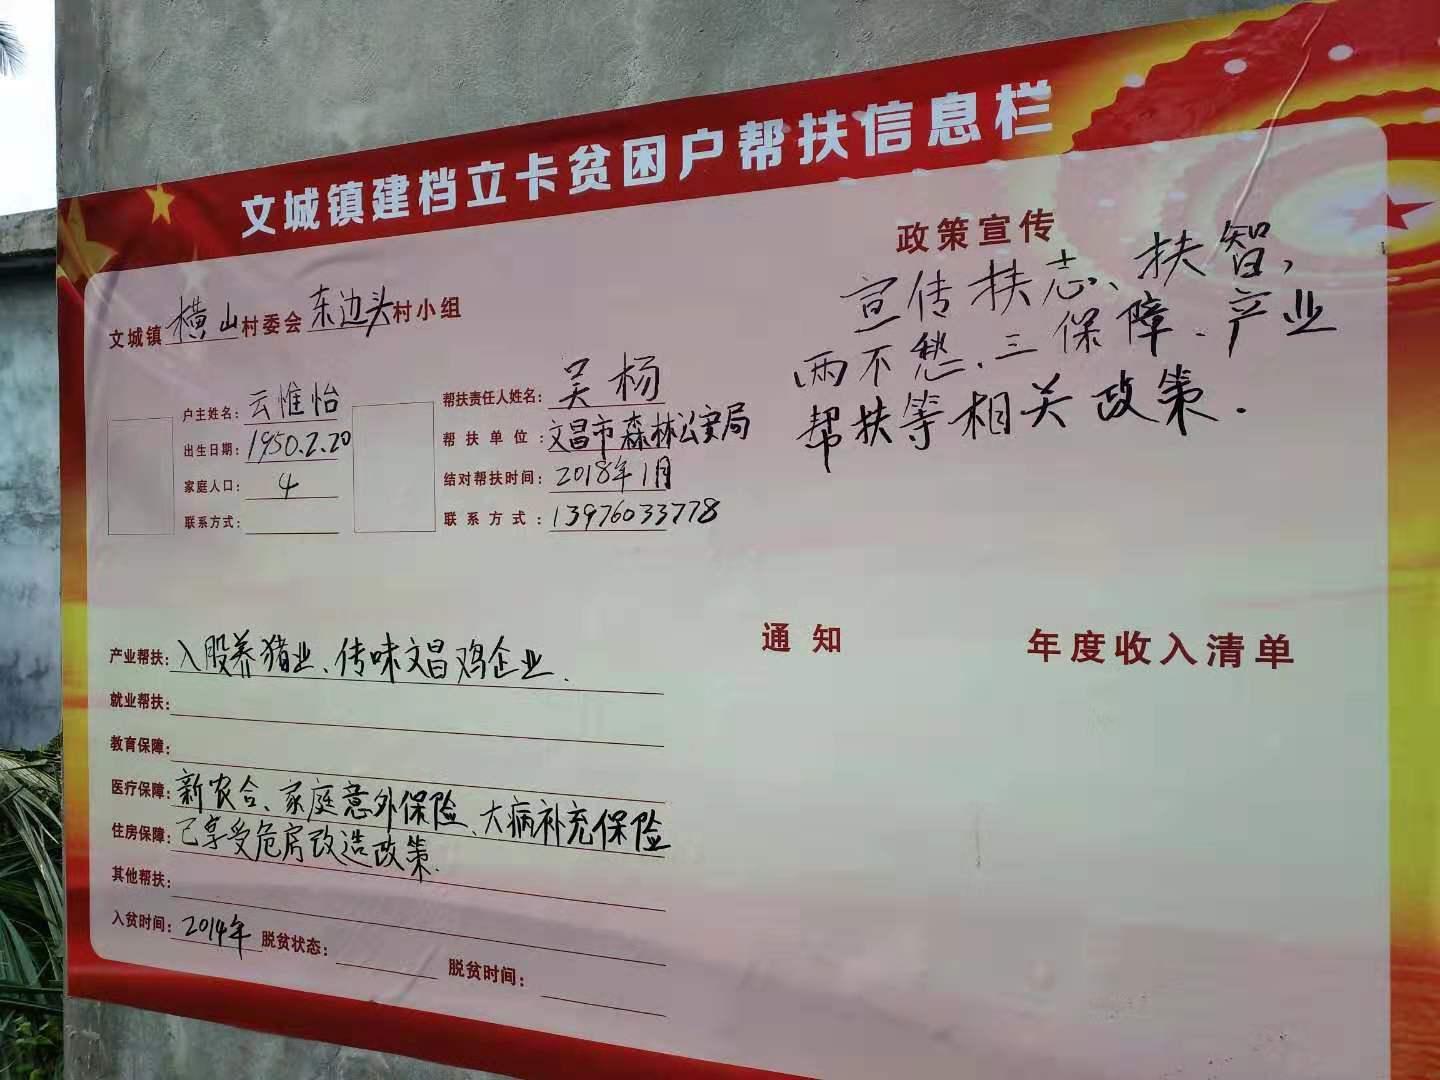 文城镇建档立卡贫困户帮扶信息栏
文城镇横山村委会东边头村小组
户主姓名：云惟怡
出生日期：1950.2.20
家庭人口：4
联系方式：
帮扶责任人姓名：吴杨
帮扶单位：文昌市森林公安局
结对帮扶时间：2018年1月
联系方式：13976033778
政策宣传
宣传扶志、扶智，
两不愁、三保障、产业
帮扶等相关政策.
产业帮扶：入股养猪业、传味文昌鸡企业.
就业帮扶：
教育保障：
医疗保障：新农合、家庭意外保险、大病补充保险
住房保障：已享受危房改造政策.
其他帮扶：
入贫时间：2014年 脱贫状态： 脱贫时间：
通知
年度收入清单